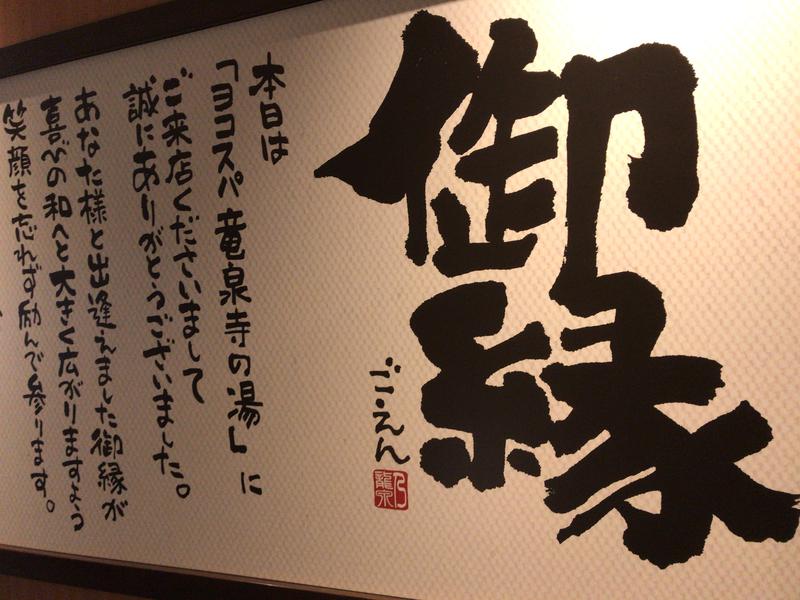 御縁
ご・えん
本日は
「ヨコスパ竜泉寺の湯」に
ご来店くださいまして
誠にありがとうございました。
あなた様と出逢えました御縁が
喜びの和へと大きく広がりますよう
笑顔を忘れず励んで参ります。